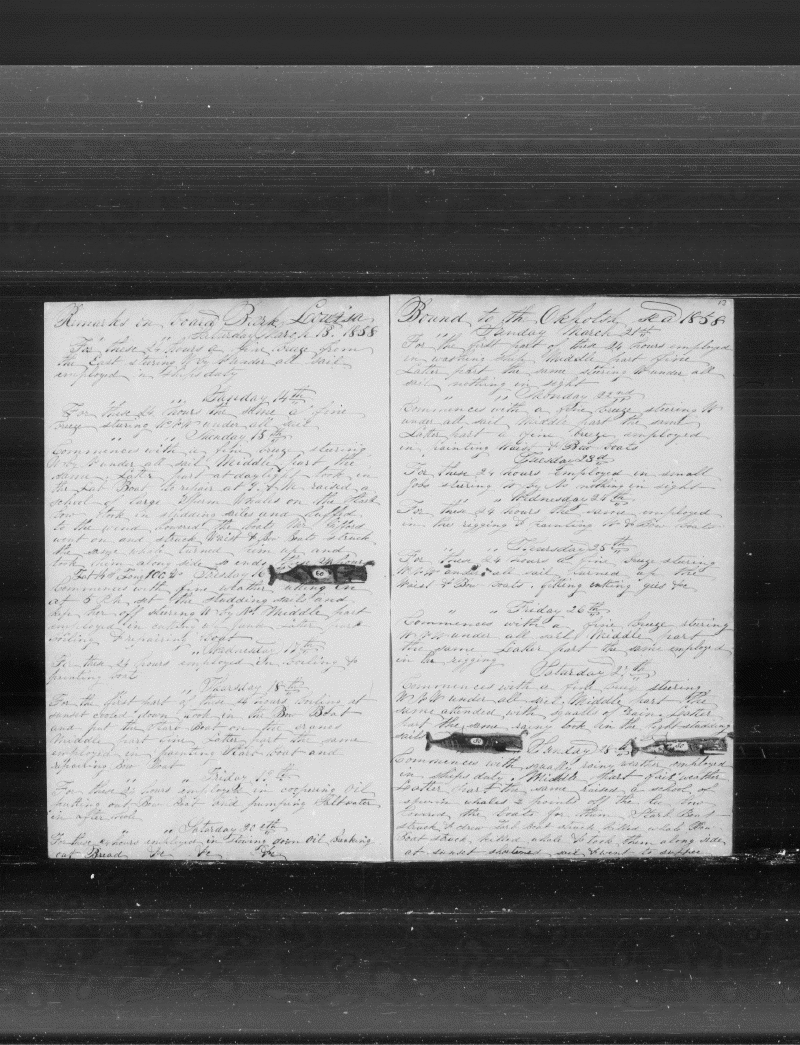 Remarks on board Bark Louisa
Saturday March 13th 1858
For these 24 hours a fine breeze from
the East stering by under all sail
employed in ships duty
" " Sunday 14th
For these 24 hours the same a fine
breeze stering under all sail
" " Monday 15th
Commences with a fine breeze stering
W by under all sail Middle part the
same Later part at daylight took in
the Boat to repair at raised a
school of large Sperm Whales on the
took in studding sailes and luffed
to the wind lowered the boats
went on and struck Waist & Bow Boats struck
the same whale turned him up and
took them along side so ends
Tuesday 16
60
Commences with fine whather
at 5 P.M. set the studding sails and
kep her off stering W by Middle part
employed in cutting Later part
boiling & repairing Boat
" " Wednesday 17th
For these 24 hours employed in boiling &
painting boat
" " Thursday 18th
For the first part of these 24 hours boiling at
sunset cooled down took in the Bow Boat
and put the Boat on the cranes
Middle part fine Later part the same
employed in painting Boat and
repairing Bow Boat
" " Friday 19th
For these 24 hours employed in coopering Oil
Bow Boat and pumping Saltwater
in after hole
" " Saturday 20th
For these 24 hours employed in Stowing down Oil
out Bread &c &c &c
12
Bound to the Okhotsk sea 1858
" " Sunday March 21st
For the first part of these 24 hours employed
in washing ship Middle part fine
Later part the same stering W under all
sail nothing in sight
" " Monday 22nd
Commences with a fine breeze steering W
under all sail Middle part the same
Later part a fine breeze employed
in painting Waist & Bow boats
Tuesday 23d
For these 24 hours Employed in small
jobs stering W by N nothing in sight
" " Wednesday 24th
For these 24 hours the same employed
in the rigging & painting W & Bow boats
" " Thursday 25th
For these 24 hours a fine breeze stering
sail up the
Waist & Bow boats fitting cutting gear &c
" " Friday 26th
Commences with a fine breeze stering
under all sail Middle part
the same Later part the same employed
in the rigging
Saturday 27th
Commences with a fine breeze stering
under all sail Middle part the
same attended with squalls of rain Later
part the same rainy took in the studding
sails
Sunday 28th
Commences with squally rainy weather employed
in ships duty Middle part fair weather
Later part the same raised a school of
sperm whales 2 points off the lee bow
lowered the boats for them Boat
struck & drew boat struck killed whale Bow
boat struck killed whale & took them along side
at sunset shortened sail & went to supper